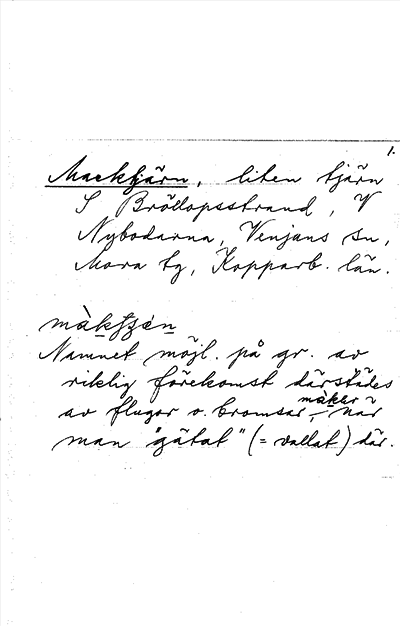 1.
Macktjärn, liten tjärn
S Bröllopsstrand, V
Nybodarna, Venjans sn,
Mora tg, Kopparb. län.
Namnet möjl. på gr. av
riklig förekomst därstädes
av flugor o. bromsar, màkar när
man "gätat" (= vallat) där.